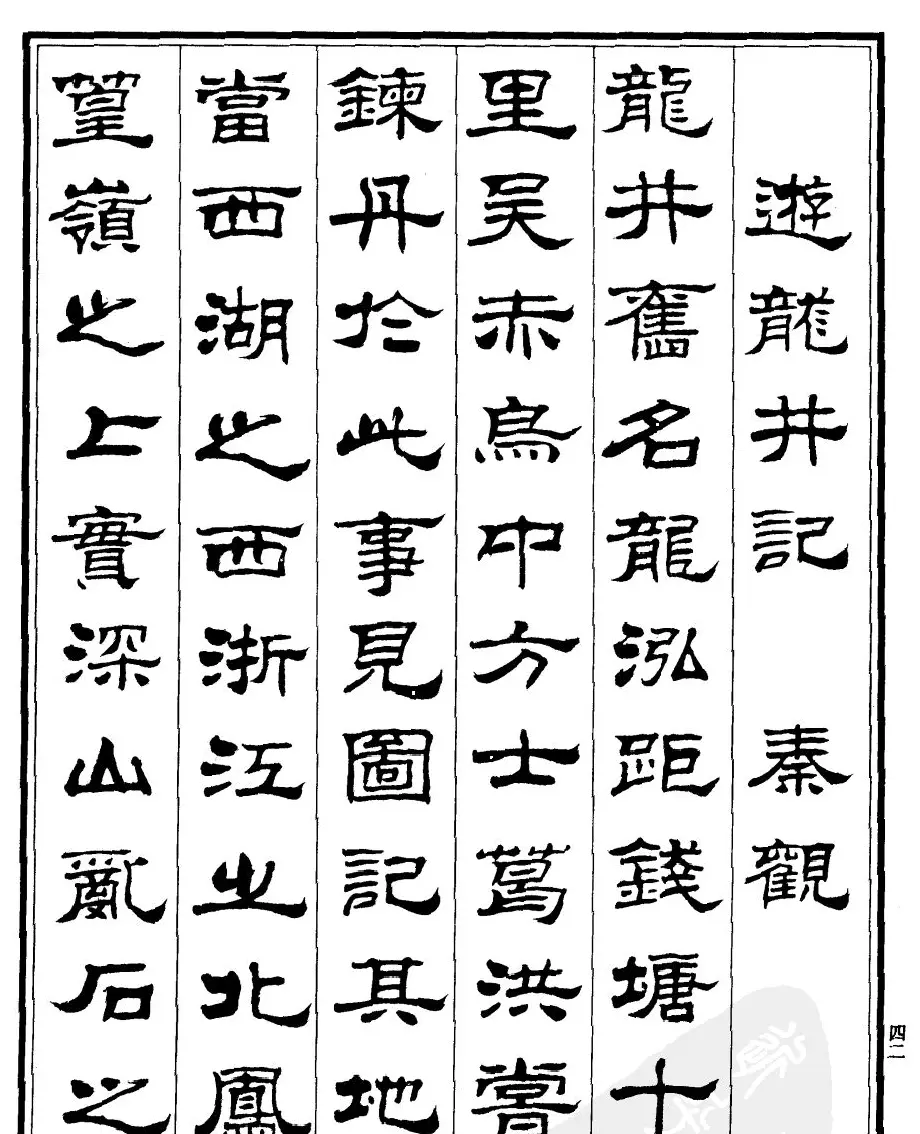 遊龍井記 秦觀
龍井舊名龍泓距錢塘十
里吴赤烏中方士葛洪嘗
鍊丹於此事見圖記其地
當西湖之西浙江之北鳳
篁嶺之上實深山亂石之
四二